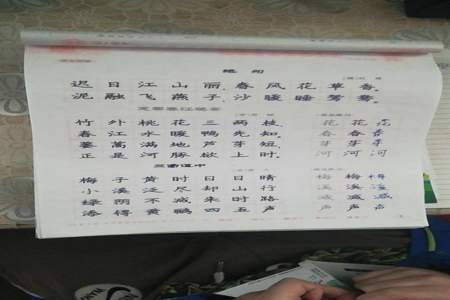 绝句
迟日江山丽，春风花草香。
泥融飞燕子，沙暖睡鸳鸯。
惠崇春江晚景
竹外桃花三两枝，花花花
春江水暖鸭先知。春春春
蒌蒿满地芦芽短，芽芽芽
正是河豚欲上时。河河河
三衢道中
梅子黄时日日晴，梅梅梅
小溪泛尽却山行。溪溪溪
绿阴不减来时路，减减减
添得黄鹂四五声。声声声